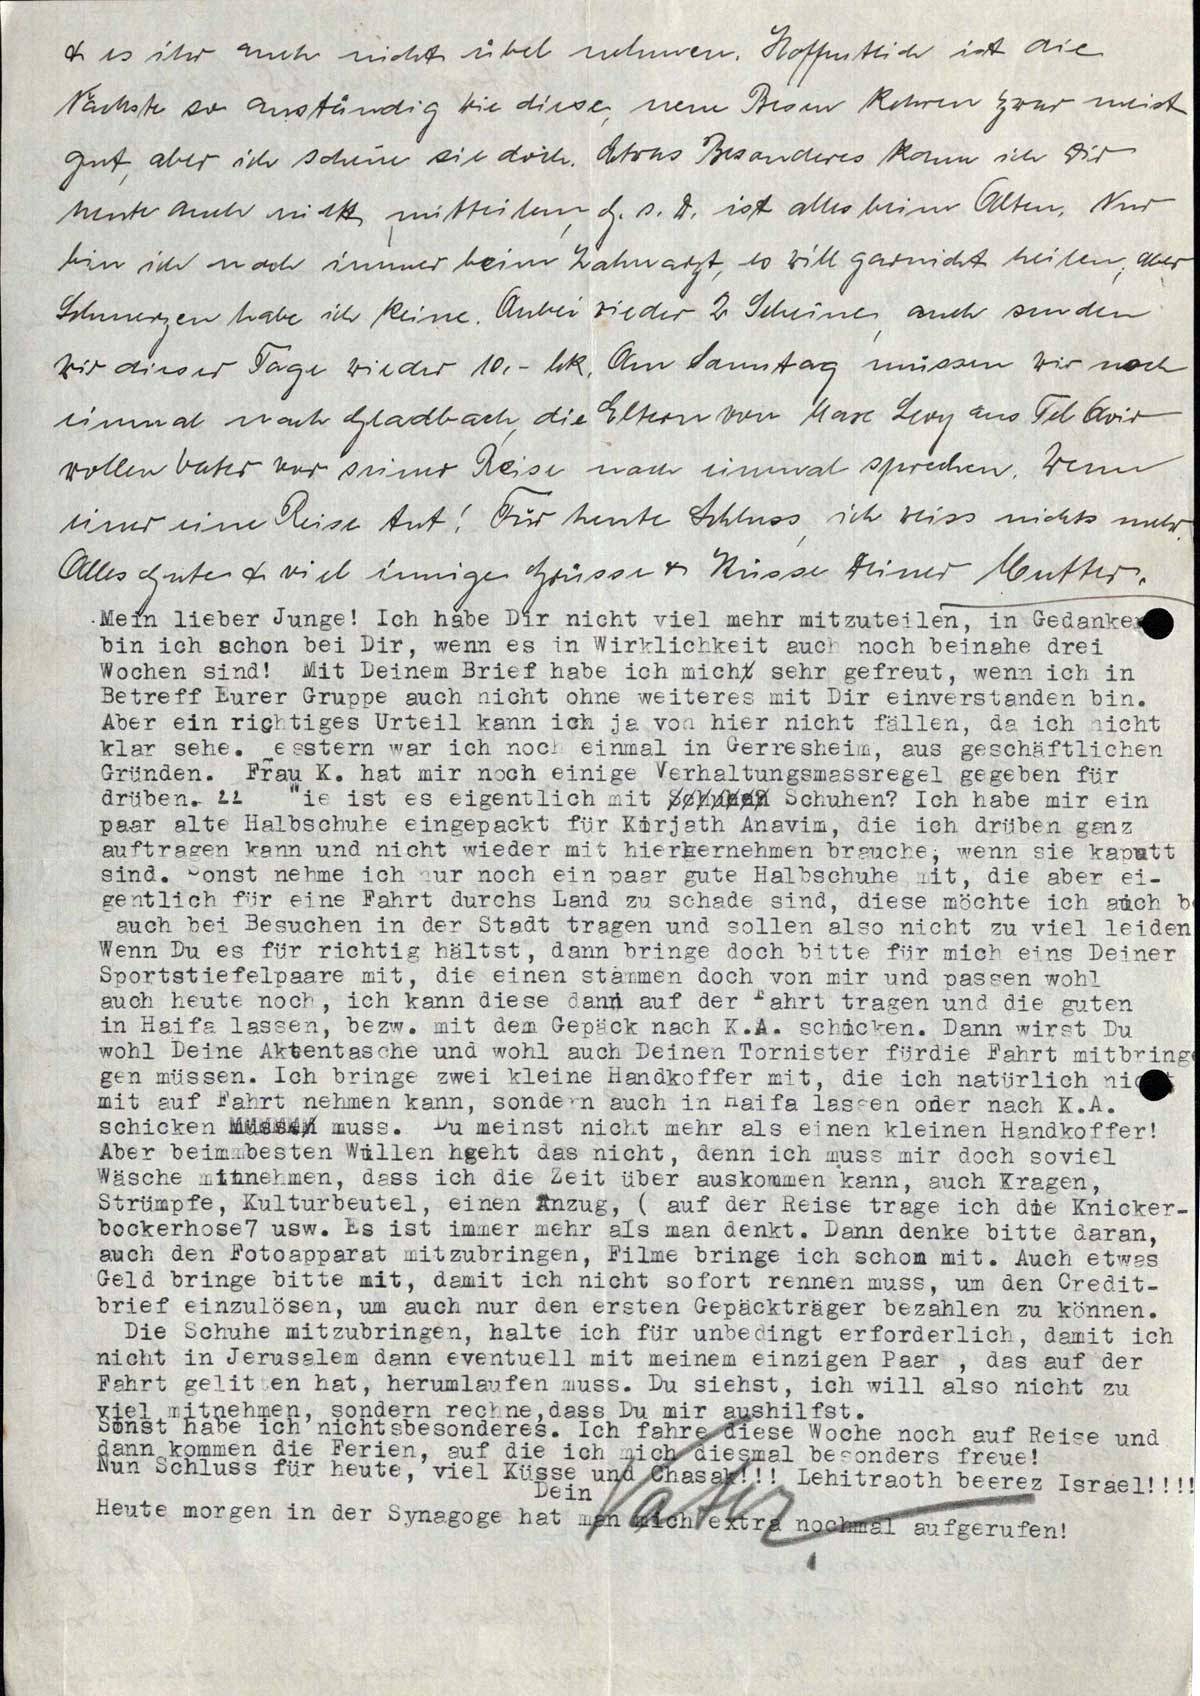 & es ihr auch nicht übel nehmen. Hoffentlich ist die
Nächste so anständig wie diese, neue Besen kehren zwar meist
gut, aber ich schone sie doch. Etwas Besonderes kann ich Dir
heute auch nicht mitteilen, G. s. D. ist alles beim Alten. Nur
bin ich noch immer beim Zahnarzt, es will garnicht heilen, aber
Schmerzen habe ich keine. Anbei wieder 2 Scheine, auch senden
wir dieser Tage wieder 10.- Mk. Am Sonntag müssen wir noch
einmal nach Gladbach, die Eltern von Max Levy aus Tel Aviv
wollen Vater vor seiner Reise noch einmal sprechen. Wenn
einer eine Reise tut! Für heute Schluss, ich weiss nichts mehr.
Alles Gute & viel innige Grüsse & Küsse Deiner Mutter.
Mein lieber Junge! Ich habe Dir nicht viel mehr mitzuteilen, in Gedanken
bin ich schon bei Dir, wenn es in Wirklichkeit auch noch beinahe drei
Wochen sind! Mit Deinem Brief habe ich mich sehr gefreut, wenn ich in
Betreff Eurer Gruppe auch nicht ohne weiteres mit Dir einverstanden bin.
Aber ein richtiges Urteil kann ich ja von hier nicht fällen, da ich nicht
klar sehe. esstern war ich noch einmal in Gerresheim, aus geschäftlichen
Gründen. Frau K. hat mir noch einige Verhaltungsmassregel gegeben für
drüben. Wie ist es eigentlich mit Schuhen? Ich habe mir ein
paar alte Halbschuhe eingepackt für Kirjath Anavim, die ich drüben ganz
auftragen kann und nicht wieder mit hierhernehmen brauche, wenn sie kaputt
sind. Sonst nehme ich nur noch ein paar gute Halbschuhe mit, die aber ei-
gentlich für eine Fahrt durchs Land zu schade sind, diese möchte ich auch b
auch bei Besuchen in der Stadt tragen und sollen also nicht zu viel leiden
Wenn Du es für richtig hältst, dann bringe doch bitte für mich eins Deiner
Sportstiefelpaare mit, die einen stammen doch von mir und passen wohl
auch heute noch, ich kann diese dann auf der Fahrt tragen und die guten
in Haifa lassen, bezw. mit dem Gepäck nach K.A. schicken. Dann wirst Du
wohl Deine Aktentasche und wohl auch Deinen Tornister fürdie Fahrt mitbringe
gen müssen. Ich bringe zwei kleine Handkoffer mit, die ich natürlich nicht
mit auf Fahrt nehmen kann, sondern auch in Haifa lassen oder nach K.A.
schicken müssen muss. Du meinst nicht mehr als einen kleinen Handkoffer!
Aber beimmbesten Willen hgeht das nicht, denn ich muss mir doch soviel
Wäsche mitnehmen, dass ich die Zeit über auskommen kann, auch Kragen,
Strümpfe, Kulturbeutel, einen Anzug, ( auf der Reise trage ich die Knicker-
bockerhose7 usw. Es ist immer mehr als man denkt. Dann denke bitte daran,
auch den Fotoapparat mitzubringen, Filme bringe ich schon mit. Auch etwas
Geld bringe bitte mit, damit ich nicht sofort rennen muss, um den Credit-
brief einzulösen, um auch nur den ersten Gepäckträger bezahlen zu können.
Die Schuhe mitzubringen, halte ich für unbedingt erforderlich, damit ich
nicht in Jerusalem dann eventuell mit meinem einzigen Paar , das auf der
Fahrt gelitten hat, herumlaufen muss. Du siehst, ich will also nicht zu
viel mitnehmen, sondern rechne,dass Du mir aushilfst.
Sonst habe ich nichtsbesonderes. Ich fahre diese Woche noch auf Reise und
dann kommen die Ferien, auf die ich mich diesmal besonders freue!
Nun Schluss für heute, viel Küsse und Chasak!!! Lehitraoth beerez Israel!!!!
Dein Vater
Heute morgen in der Synagoge hat man mich extra nochmal aufgerufen!